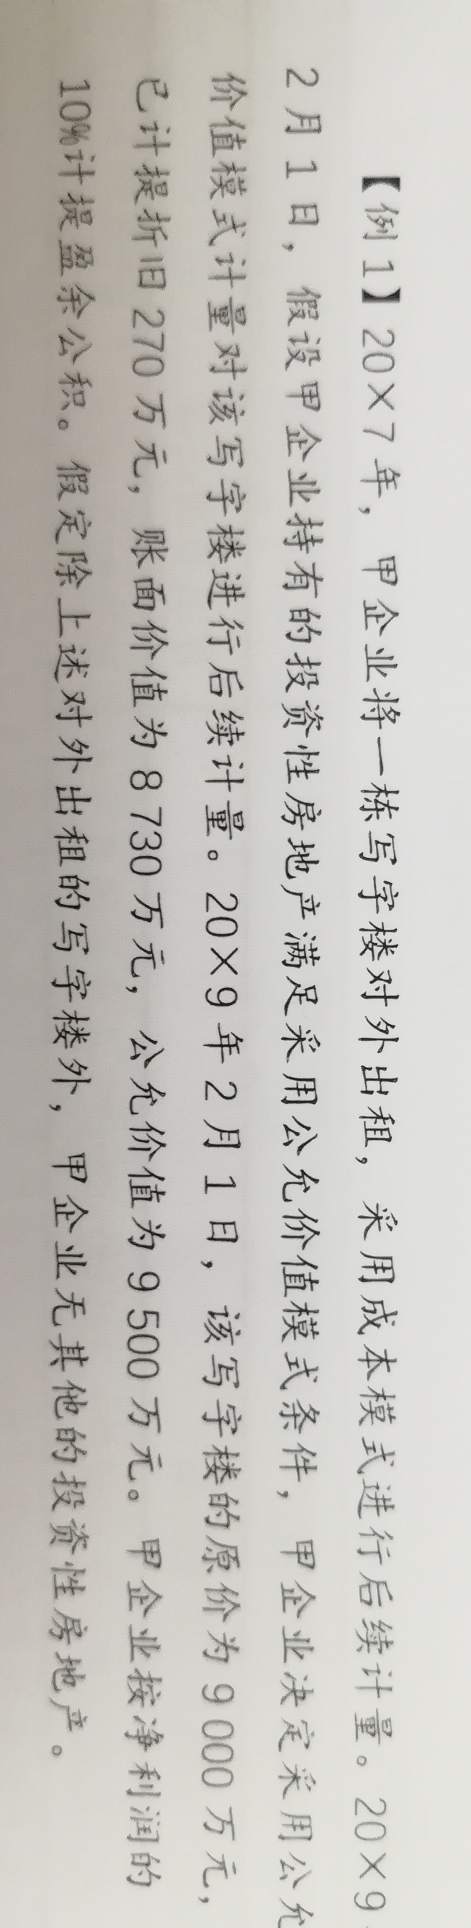 【例1】20×7年，甲企业将一栋写字楼对外出租，采用成本模式进行后续计量。20×9
2月1日，假设甲企业持有的投资性房地产满足采用公允价值模式条件，甲企业决定采用公允
价值模式计量对该写字楼进行后续计量。20×9年2月1日，该写字楼的原价为9 000万元，
已计提折旧270万元，账面价值为8 730万元，公允价值为9 500万元。甲企业按净利润的
10%计提盈余公积。假定除上述对外出租的写字楼外，甲企业无其他的投资性房地产。